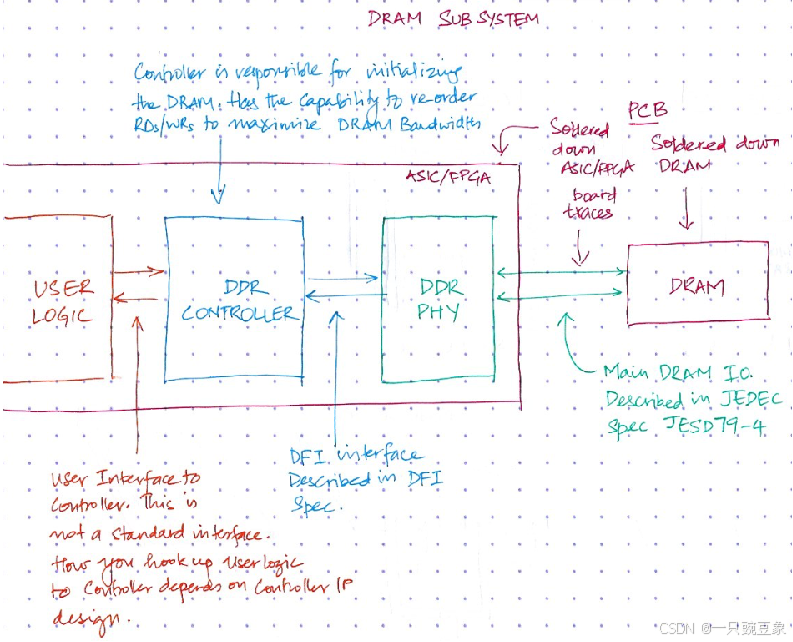 DRAM SUBSYSTEM
Controller is responsible for initializing
the DRAM. Has the capability to re-order
RDs/WRs to maximize DRAM Bandwidth
PCB
Soldered
down
ASIC/FPGA
board
traces
Soldered down
DRAM
ASIC/FPGA
USER
LOGIC
DDR
CONTROLLER
DDR
PHY
DRAM
Main DRAM I.C.
Described in JEDEC
Spec JESD79-4
DFI interface
Described in DFI
Spec.
User Interface to
Controller. This is
not a standard interface.
How you hook up User logic
to Controller depends on Controller IP
design.
CSDN @一只豌豆象